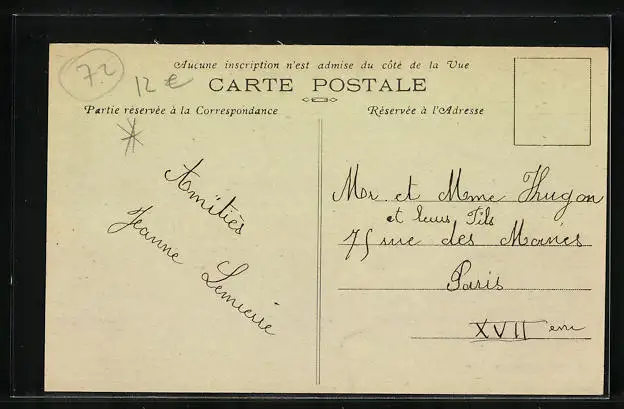 72
12 €
Aucune inscription n'est admise du côté de la Vue
CARTE POSTALE
Partie réservée à la Correspondance
Réservée à l'Adresse
Amitiés
Jeanne Lemierre
Mr et Mme Hugon
et leurs Fils
75 rue des Moines
Paris
XVII eme